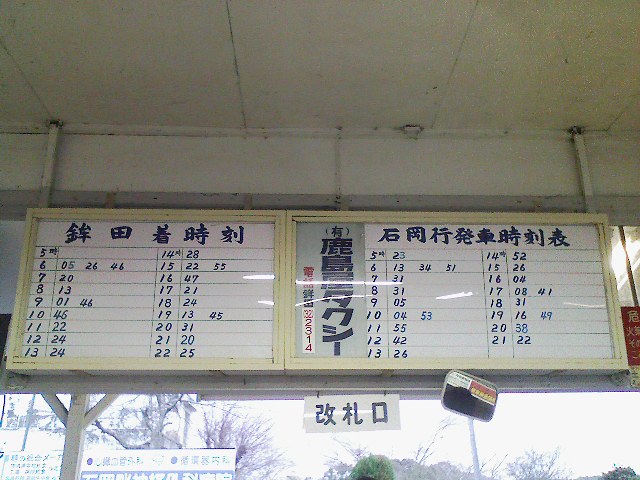 鉾田着時刻
5時 14時 28
6 05 26 46 15 22 55
7 20 16 47
8 13 17 21
9 01 46 18 24
10 46 19 13 45
11 22 20 31
12 24 21 20
13 24 22 25
(有)
鹿島 タクシー
電話鉾田 2314
石岡行発車時刻表
5時 23 14時 52
6 13 34 51 15 26
7 31 16 04
8 31 17 08 41
9 05 18 31
10 04 53 19 16 49
11 55 20 38
12 42 21 22
13 26
改札口
危
火